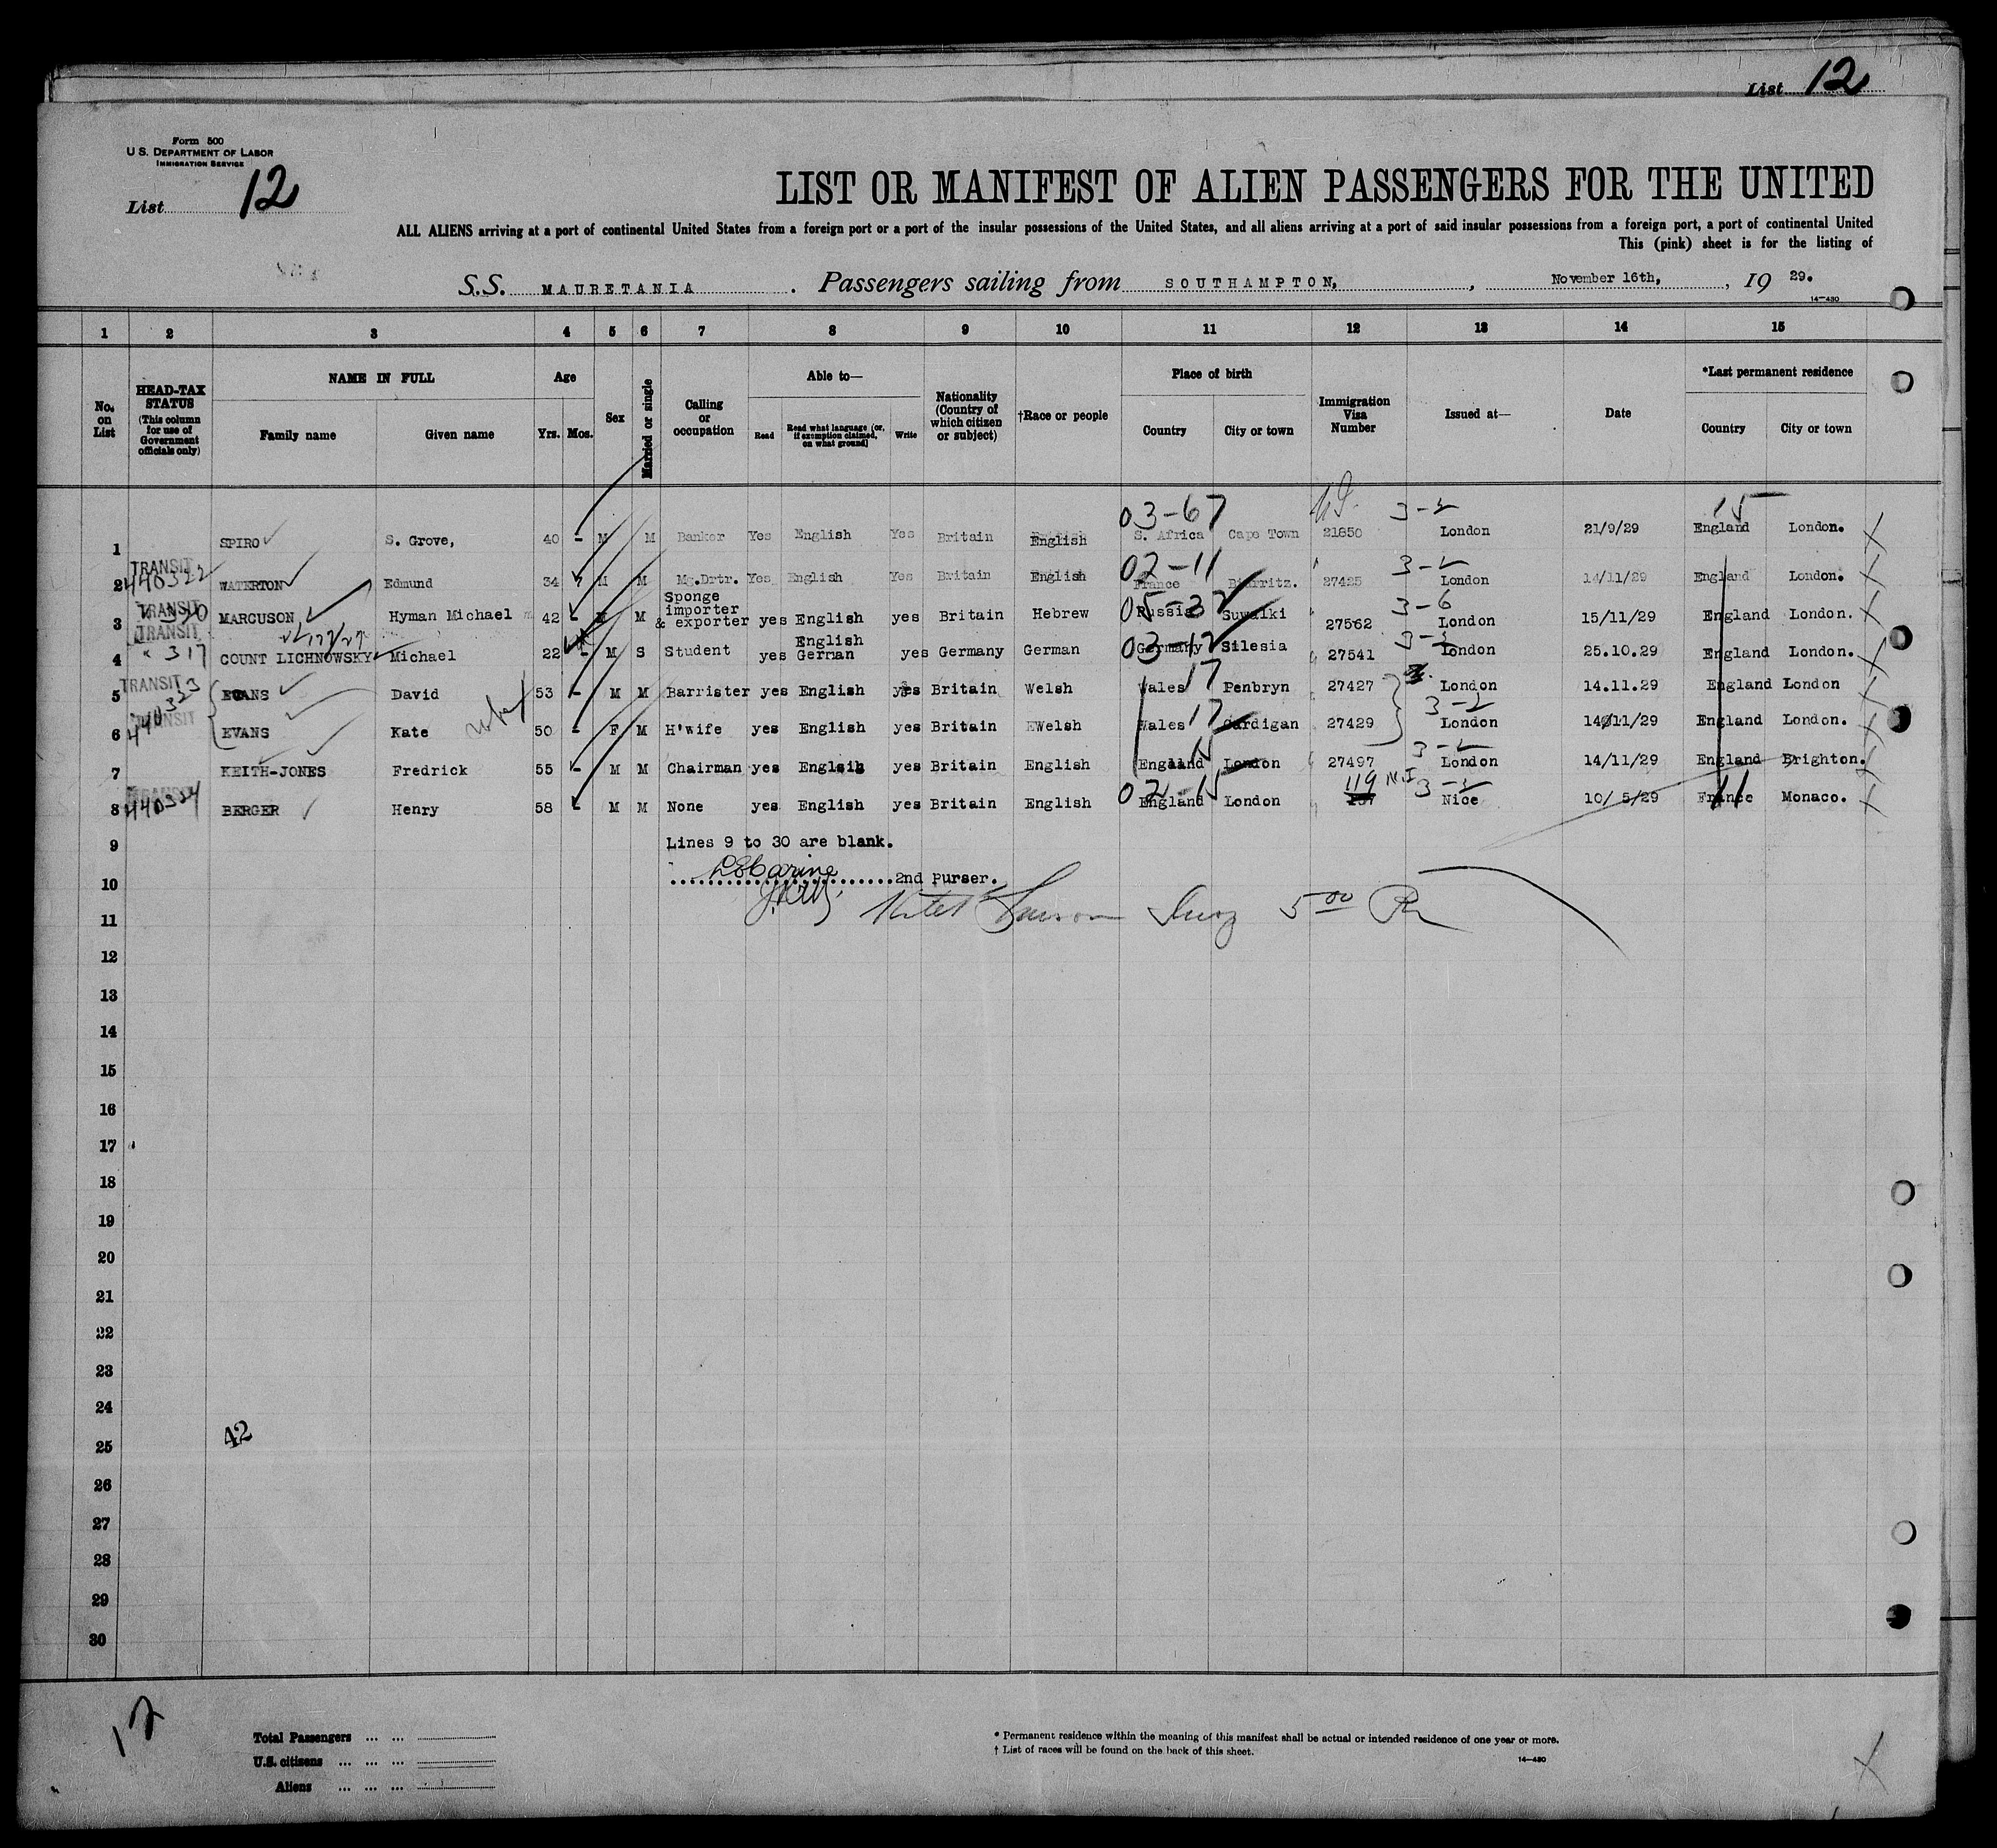 List 12
Form 500
U.S. DEPARTMENT OF LABOR
IMMIGRATION SERVICE
List 12
LIST OR MANIFEST OF ALIEN PASSENGERS FOR THE UNITED
ALL ALIENS arriving at a port of continental United States from a foreign port or a port of the insular possessions of the United States, and all aliens arriving at a port of said insular possessions from a foreign port, a port of continental United
This (pink) sheet is for the listing of
S.S. MAURETANIA . Passengers sailing from SOUTHAMPTON, , November 16th, , 19 29.
14—430
1 2 3 4 5 6 7 8 9 10 11 12 13 14 15
No. on List HEAD-TAX STATUS (This column for use of Government officials only) NAME IN FULL Family name Given name Age Yrs. Mos. Sex Married or single Calling or occupation Able to— Read Read what language (or, if exemption claimed, on what ground) Write Nationality (Country of which citizen or subject) †Race or people Place of birth Country City or town Immigration Visa Number Issued at— Date *Last permanent residence Country City or town
03-67 3-2 15
1 SPIRO S. Grove, 40 - M M Banker Yes English Yes Britain English S. Africa Cape Town 21850 London 21/9/29 England London.
TRANSIT 02-11 3-2
2 440322 WATERTON Edmund 34 M M Mg.Drtr. Yes English Yes Britain English France Biarritz. 27425 London 14/11/29 England London.
TRANSIT Sponge importer 05-37 3-6
3 MARCUSON Hyman Michael 42 - M M & exporter yes English yes Britain Hebrew Russia Suwalki 27562 London 15/11/29 England London.
TRANSIT English 03-17
4 " 317 COUNT LICHNOWSKY Michael 22 - M S Student yes German yes Germany German Germany Silesia 27541 London 25.10.29 England London.
TRANSIT 17
5 440323 EVANS David 53 - M M Barrister yes English yes Britain Welsh Wales Penbryn 27427 London 14.11.29 England London
TRANSIT 17 3-2
6 EVANS Kate 50 - F M H'wife yes English yes Britain EWelsh Wales Cardigan 27429 London 14/11/29 England London.
15 3-2
7 KEITH-JONES Fredrick 55 - M M Chairman yes Englsih yes Britain English England London 27497 London 14/11/29 England Brighton.
TRANSIT 02-15 119 3-2 11
8 440324 BERGER Henry 58 - M M None yes English yes Britain English England London 257 Nice 10/ 5/29 France Monaco.
9 Lines 9 to 30 are blank.
10 2nd Purser.
11 Surg 5 00
12
13
14
15
16
17
18
19
20
21
22
23
24
25 42
26
27
28
29
30
12
Total Passengers ... ...
U.S. citizens ... ... ...
Aliens ... ... ...
* Permanent residence within the meaning of this manifest shall be actual or intended residence of one year or more.
† List of races will be found on the back of this sheet.
14—430